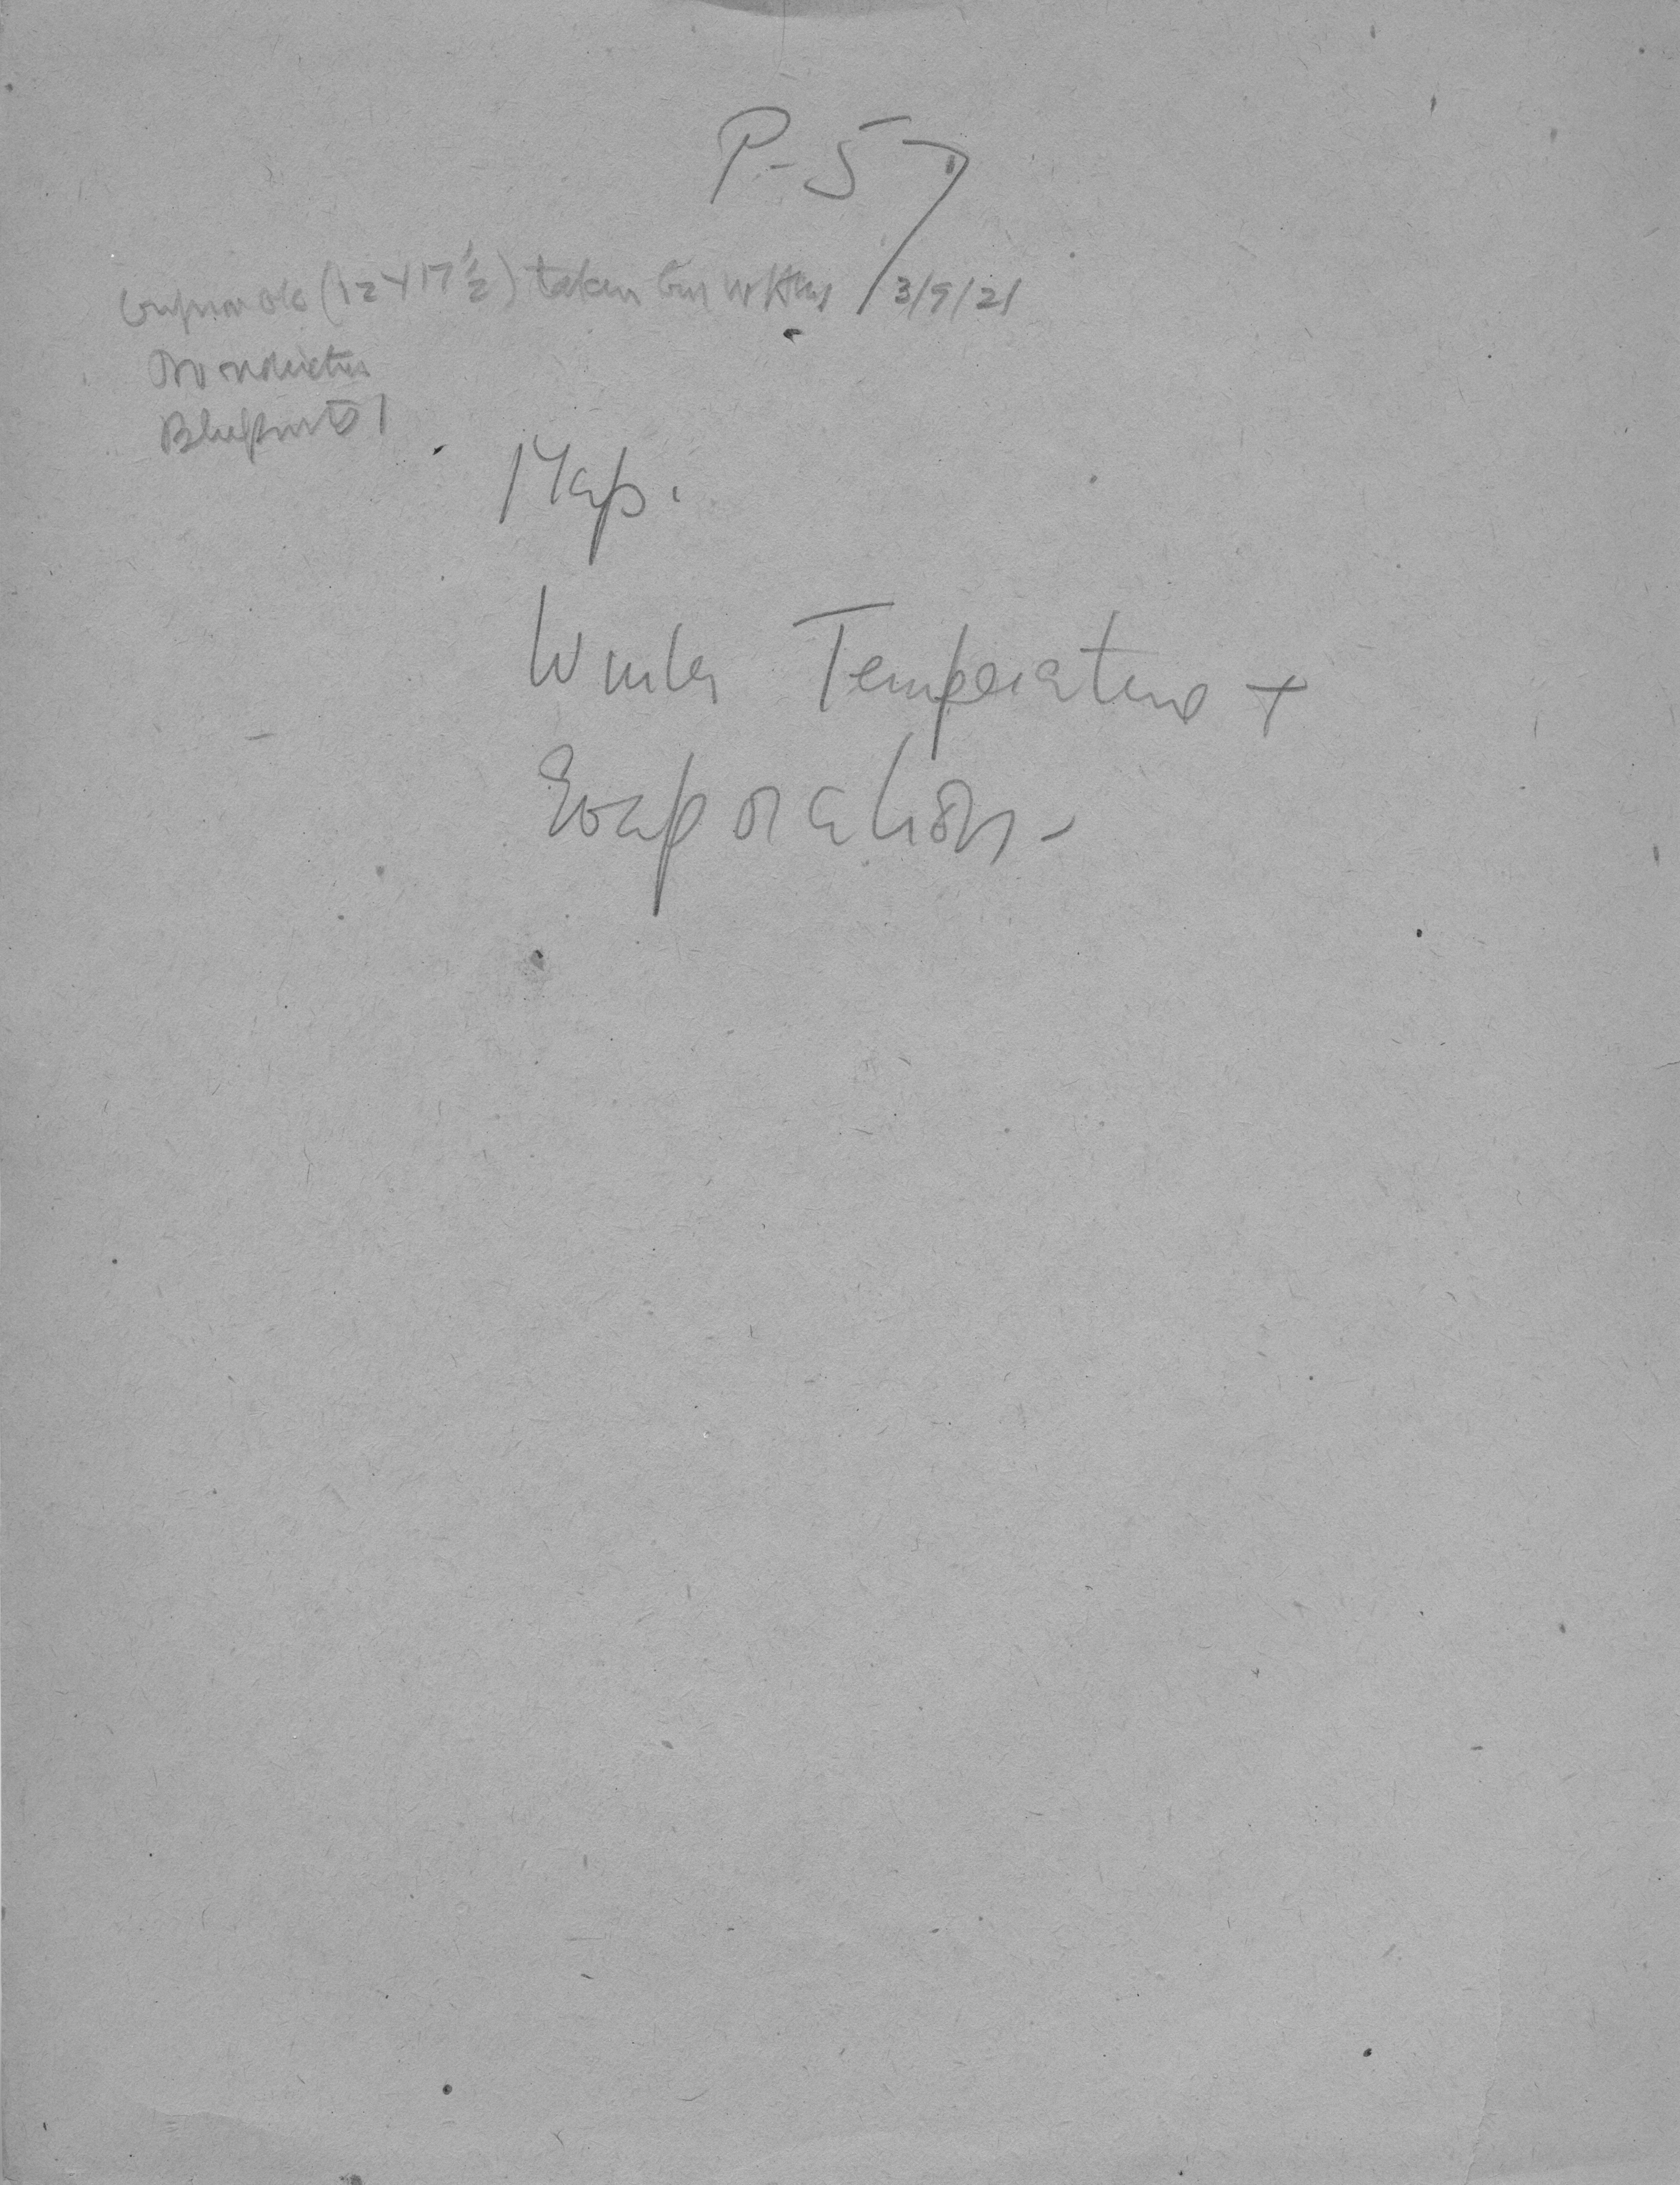 P-57
(12 x 17 1/2) taken 3/9/21
No
Blueprints 1
Map.
Winter Temperature +
Evaporation -